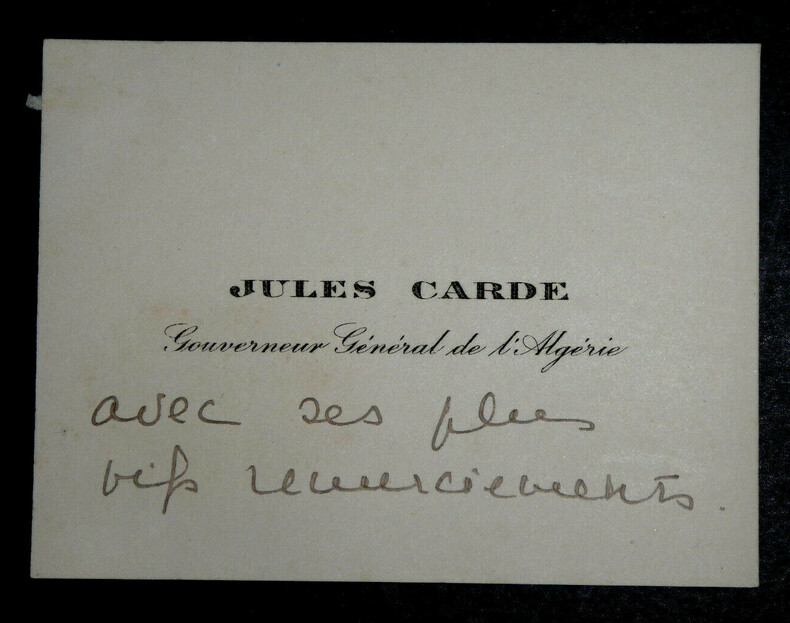 JULES CARDE
Gouverneur Général de l'Algérie
avec ses plus
vifs remerciements.